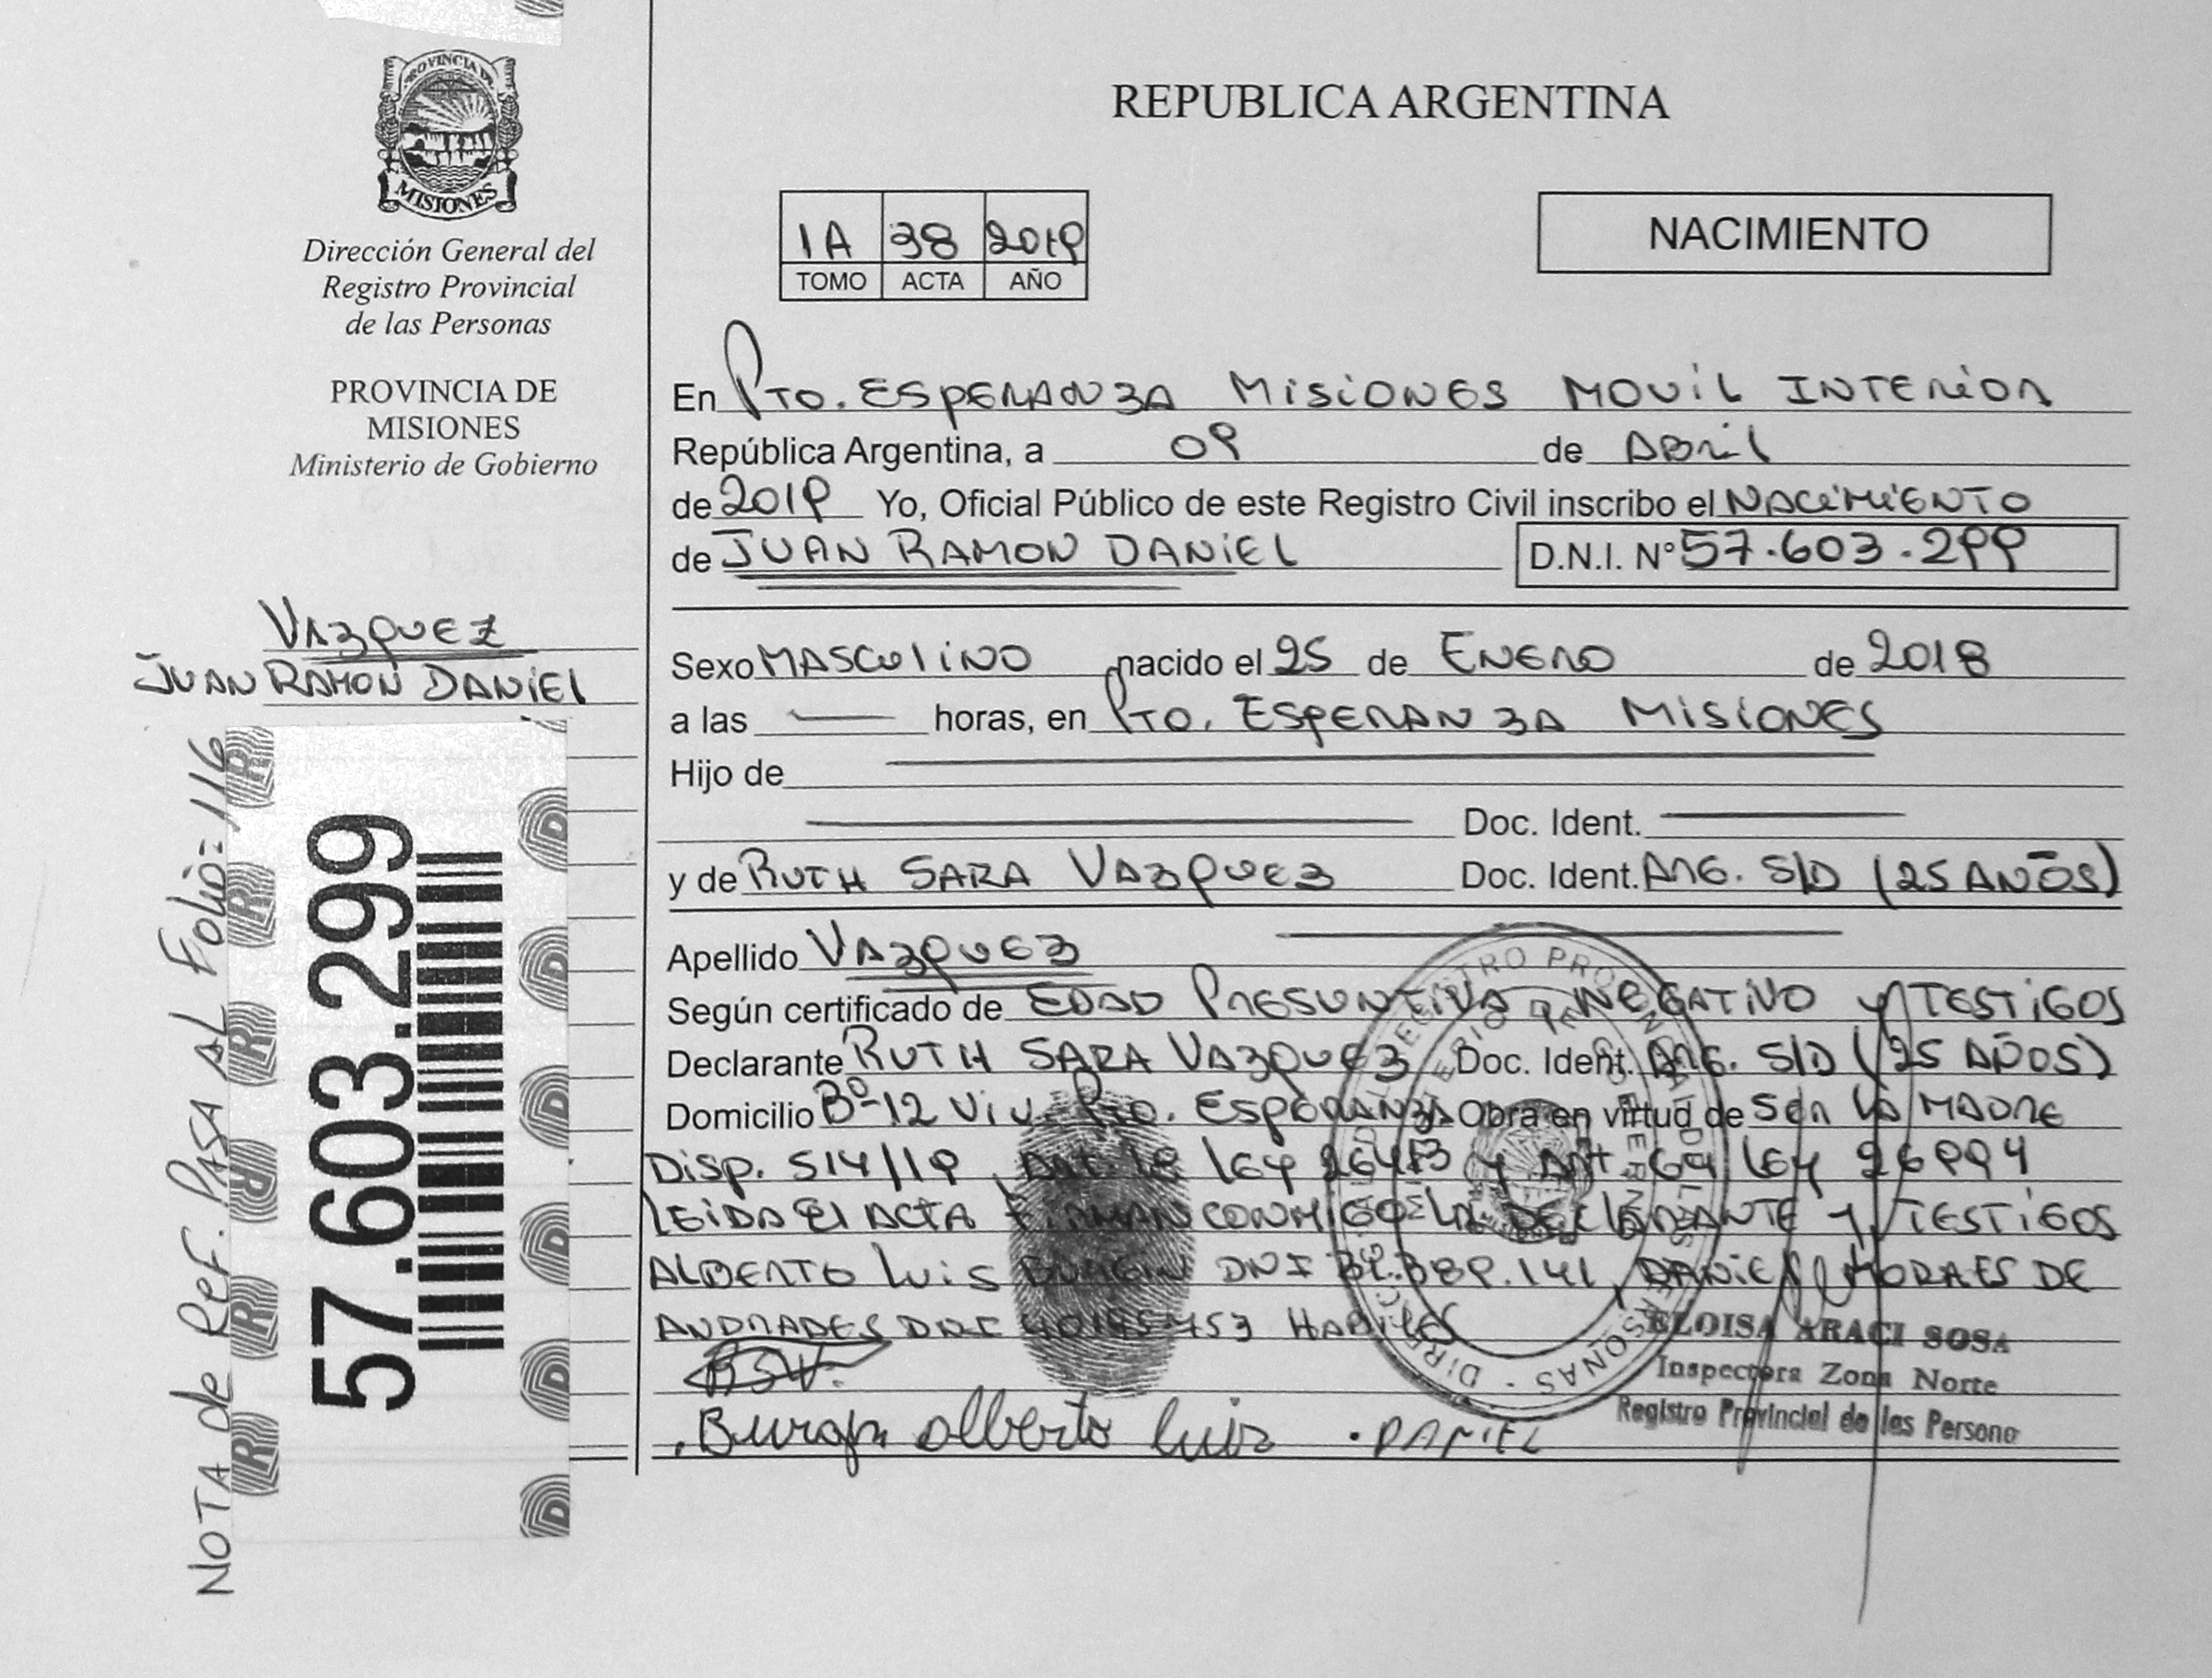 PROVINCIA DE
MISIONES
Dirección General del
Registro Provincial
de las Personas
PROVINCIA DE
MISIONES
Ministerio de Gobierno
VAZQUEZ
JUAN RAMON DANIEL
NOTA de Ref. PASA AL Folio: 116
57.603.299
REPUBLICA ARGENTINA
1A 38 2019
TOMO ACTA AÑO
NACIMIENTO
En Pto. ESPERANZA MISIONES MOVIL INTERIOR
República Argentina, a 09 de ABRIL
de 2019 Yo, Oficial Público de este Registro Civil inscribo el NACIMIENTO
de JUAN RAMON DANIEL D.N.I. N° 57.603.299
Sexo MASCULINO nacido el 25 de ENERO de 2018
a las horas, en PTO. ESPERANZA MISIONES
Hijo de
Doc. Ident.
y de RUTH SARA VAZQUEZ Doc. Ident. ARG. S/D (25 AÑOS)
Apellido VAZQUEZ
Según certificado de EDAD PRESUNTIVA NEGATIVO y TESTIGOS
Declarante RUTH SARA VAZQUEZ Doc. Ident. ARG. S/D (25 AÑOS)
Domicilio Bº 12 Viv. Pto. ESPERANZA Obra en virtud de SER LA MADRE
Disp. 514/19 LEY 26413 y ART 64 LEY 26994
LEIDA EL ACTA FIRMAN CONMIGO LA DECLARANTE y TESTIGOS
ALBERTO LUIS BURGIN DNI 389.141, DANIEL MORAES DE
ANDRADES DNI HABILES
RSV.
Alberto Luis . DANIEL
ELOISA ARACI SOSA
Inspectora Zona Norte
Registro Provincial de las Persona